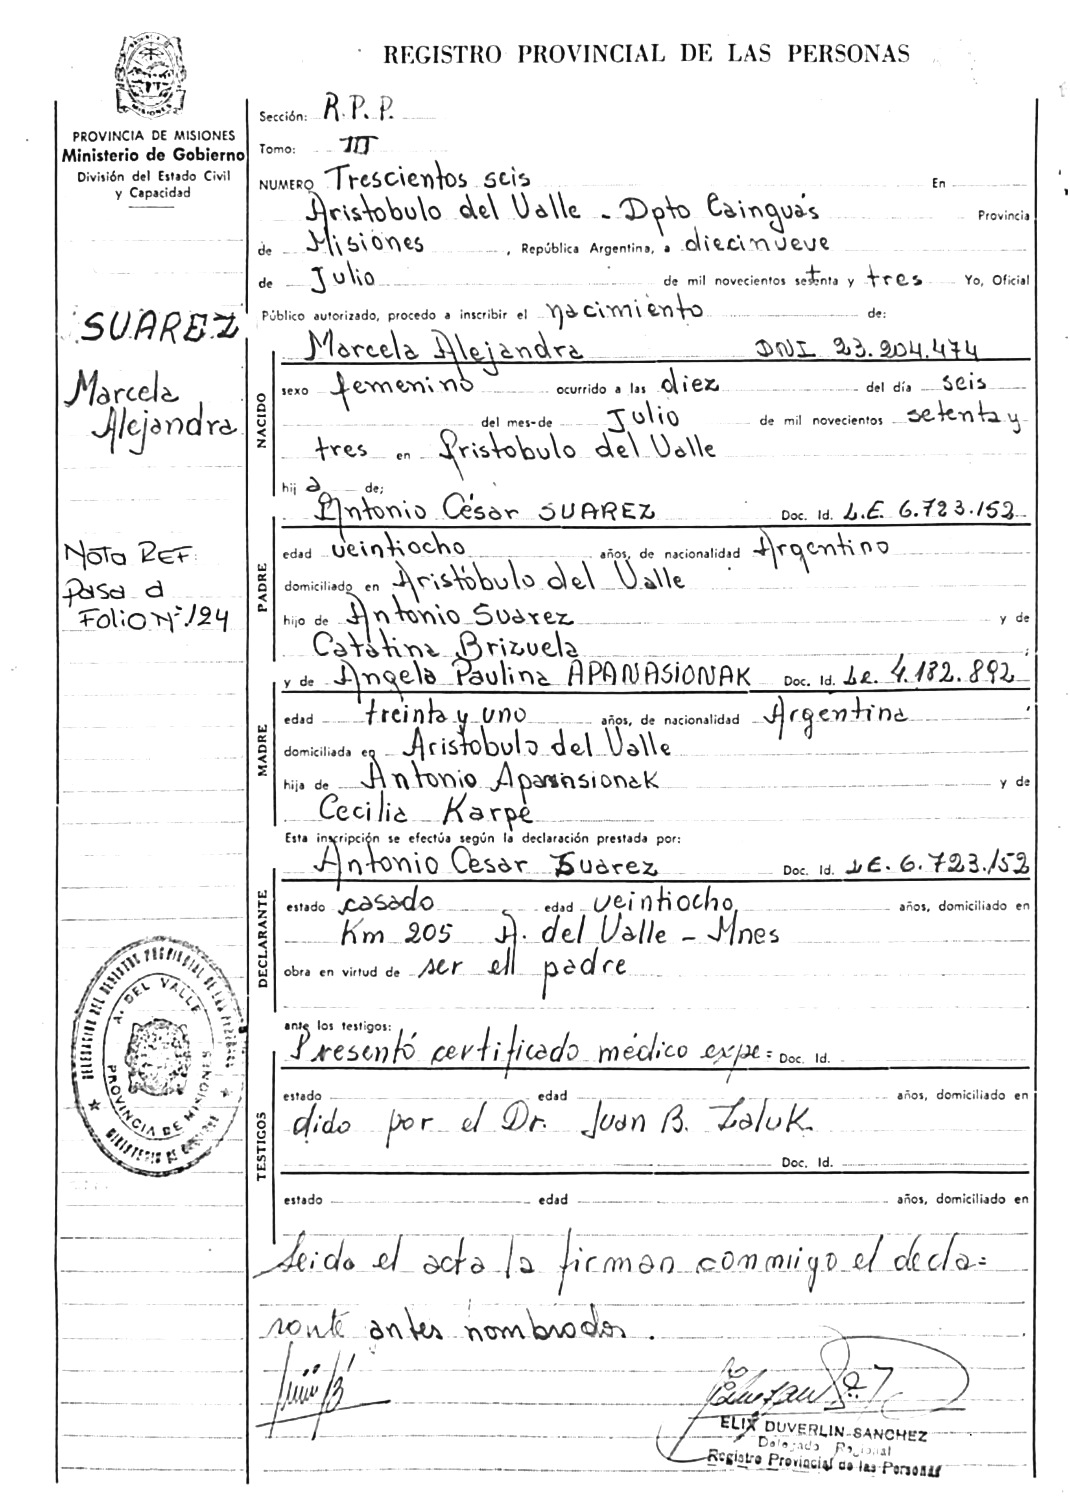 REGISTRO PROVINCIAL DE LAS PERSONAS
MISIONES
PROVINCIA DE MISIONES
Ministerio de Gobierno
División del Estado Civil
y Capacidad
SUAREZ
Marcela
Alejandra
NOTA REF:
Pasa a
FOLIO Nº 124
Sección: R.P.P.
Tomo: III
NUMERO Trescientos seis En
Aristobulo del Valle - Dpto Cainguás Provincia
de Misiones, República Argentina, a diecinueve
de Julio de mil novecientos setenta y tres Yo, Oficial
Público autorizado, procedo a inscribir el nacimiento de:
NACIDO
Marcela Alejandra DNI 23.204.474
sexo femenino ocurrido a las diez del día seis
del mes de Julio de mil novecientos setenta y
tres en Aristobulo del Valle
hija de;
PADRE
Antonio César SUAREZ Doc. Id. L.E. 6.723.152
edad veintiocho años, de nacionalidad Argentino
domiciliado en Aristóbulo del Valle
hijo de Antonio Suarez y de
Catalina Brizuela;
MADRE
y de Angela Paulina APANASIONAK Doc. Id. Le. 4.182.892
edad treinta y uno años, de nacionalidad Argentina
domiciliada en Aristobulo del Valle
hija de Antonio Apanasionak y de
Cecilia Karpe
Esta inscripción se efectúa según la declaración prestada por:
DECLARANTE
Antonio Cesar Suarez Doc. Id. LE. 6.723.152
estado casado edad veintiocho años, domiciliado en
Km 205 A. del Valle - Mnes
obra en virtud de ser ell padre
ante los testigos:
TESTIGOS
Presentó certificado médico expe= Doc. Id.
estado edad años, domiciliado en
dido por el Dr. Juan B. Zaluk.
Doc. Id.
estado edad años, domiciliado en
Leida el acta la firman conmigo el decla=
rante antes nombrados.
DELEGACION DEL REGISTRO PROVINCIAL DE LAS PERSONAS
A. DEL VALLE
PROVINCIA DE MISIONES
MINISTERIO DE GOBIERNO
ELIX DUVERLIN SANCHEZ
Delegado Regional
Registro Provincial de las Personas